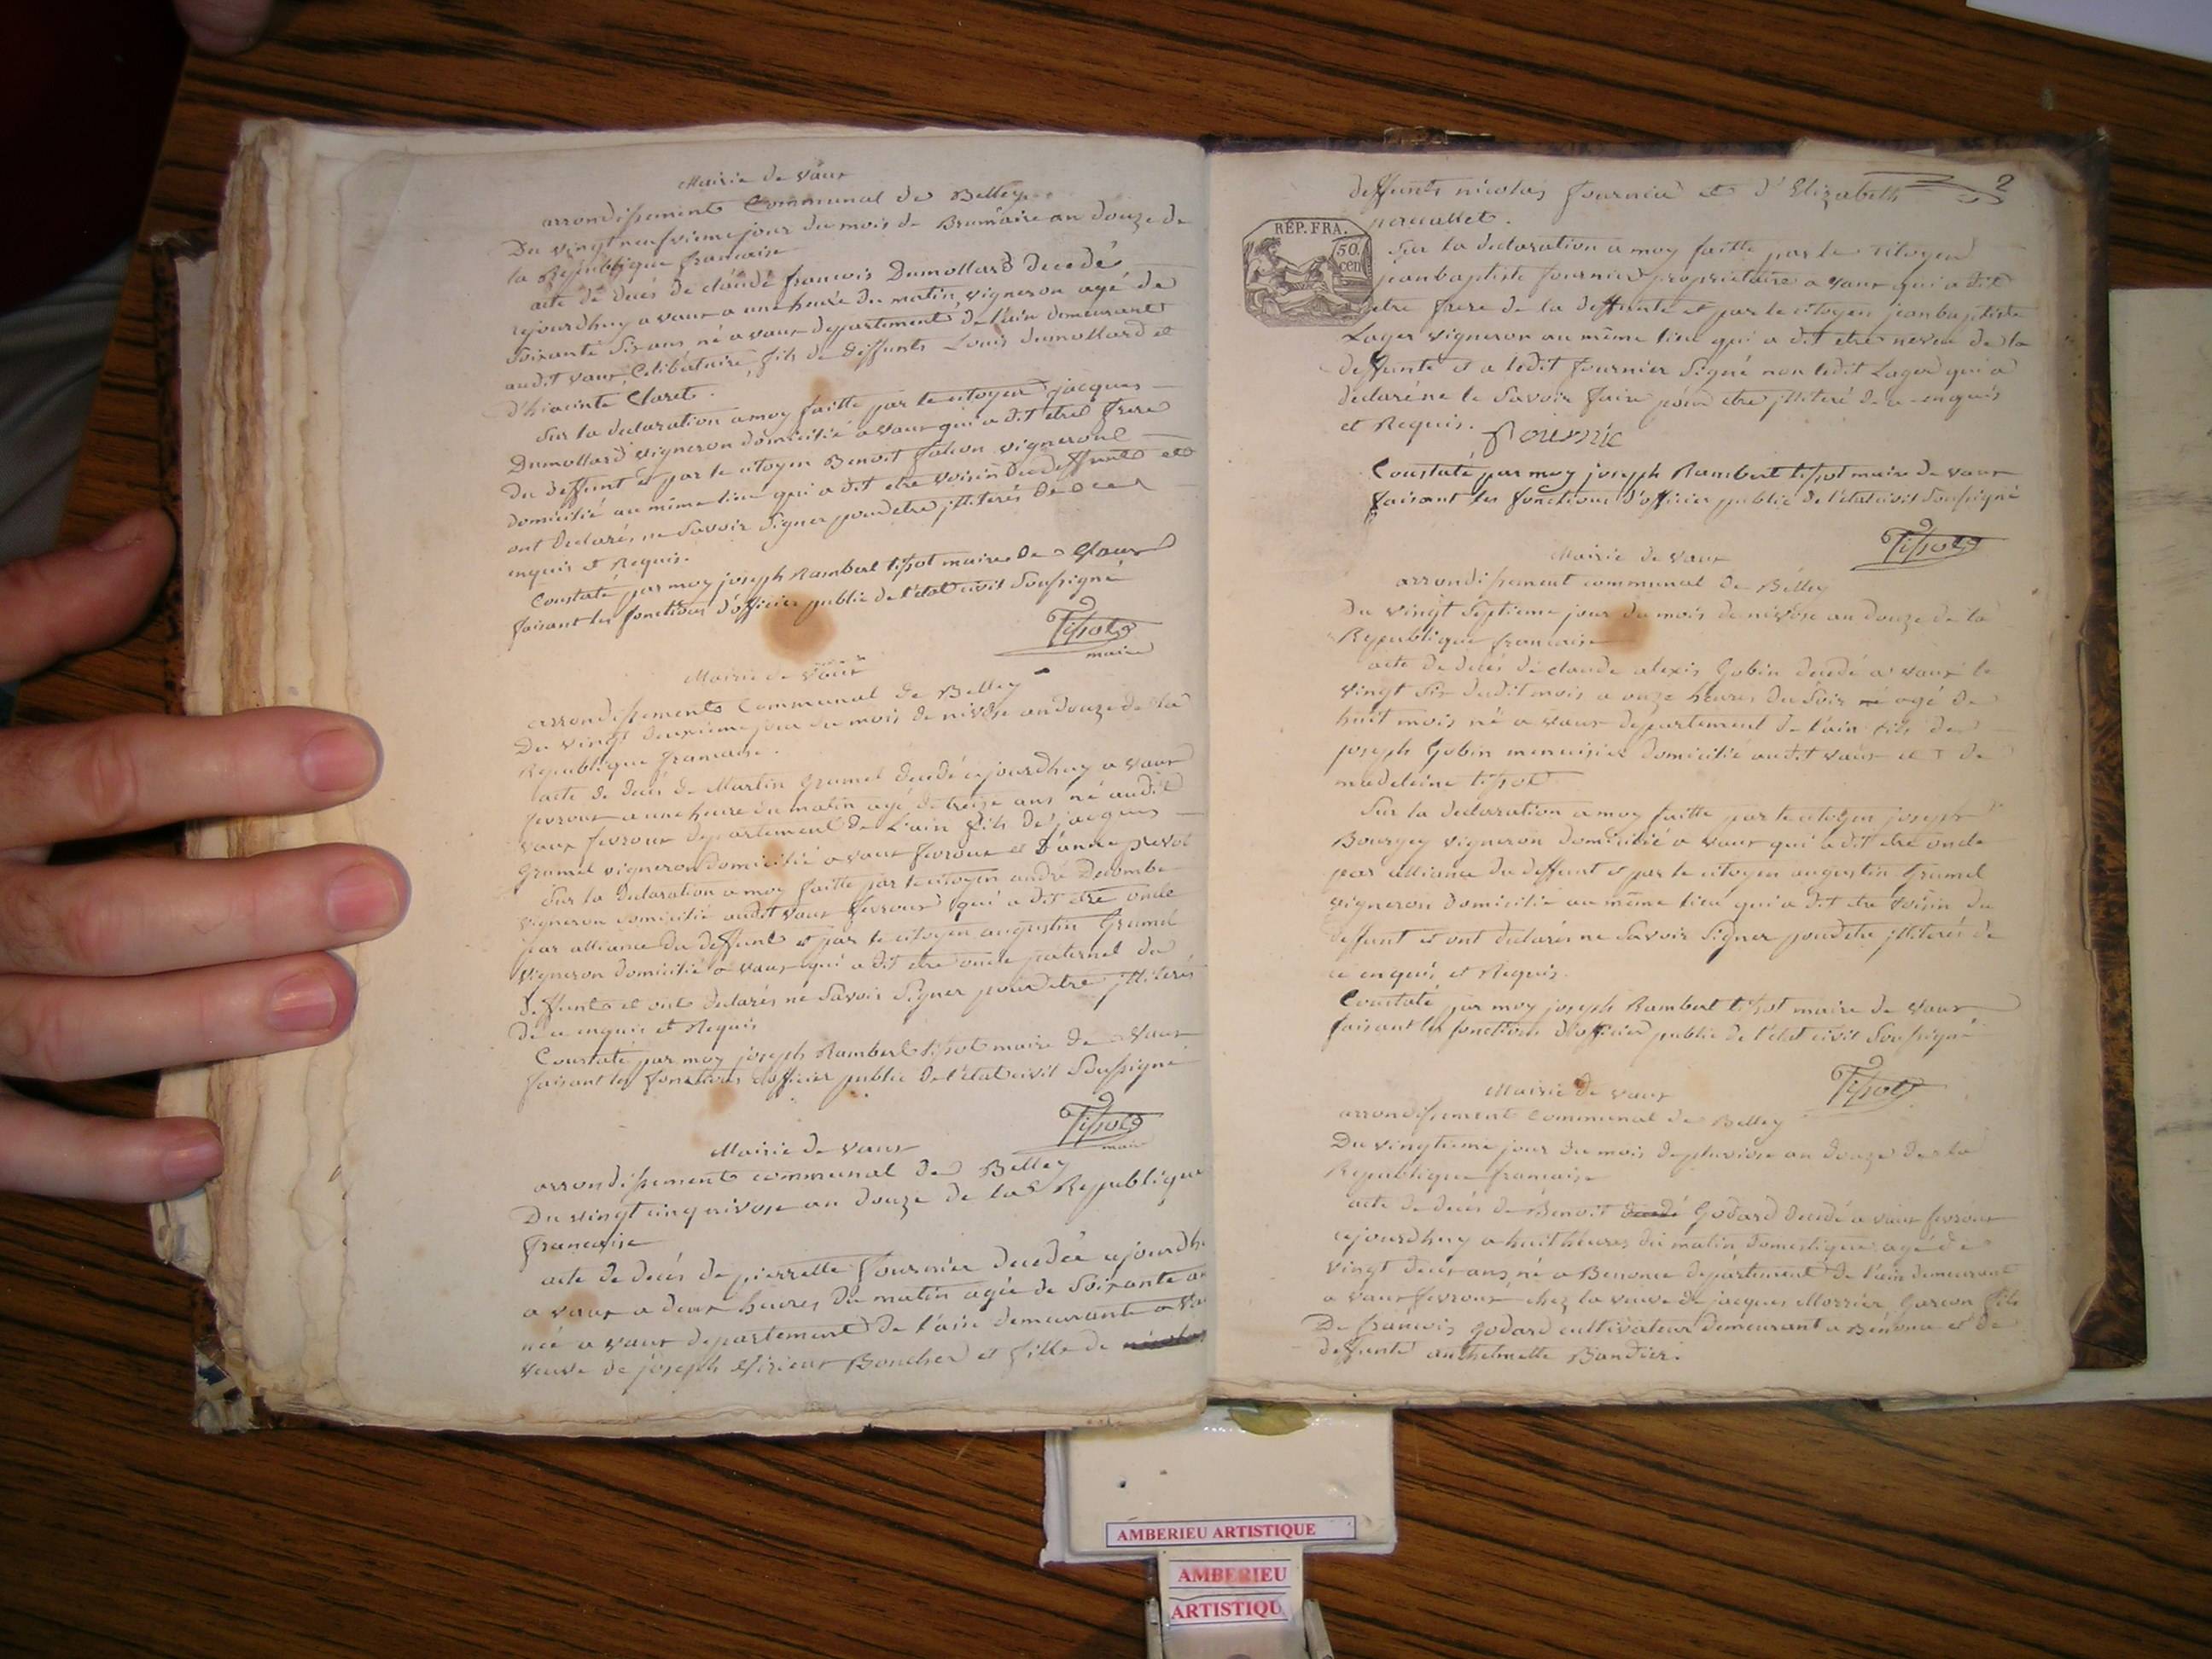 Mairie de Vaux
arrondissement Communal de Belley
Du vingt neufvieme jour du mois de Brumaire an douze de
la Republique francaise
acte de decés de claude francois Dumollard decedé
cejourdhuy a vaux a une heure du matin, vigneron agé de
Soixante Six ans, né a vaux departement de l'ain demeurant
audit vaux, Celibataire, fils de deffunts Louis dumollard et
d'hiacinte Claret.
Sur la declaration a moy faitte par le citoyen jacques
Dumollard vigneron domicilié a vaux qui a dit etre frere
du deffunt et par le citoyen Benoit falcon vigneron
domicilié au même lieu qui a dit etre voisin du deffunt et
ont declarés ne Savoir Signer pour etre jlliterés de ce
enquis et Requis.
Constaté par moy joseph Rambert tissot maire de Vaux
faisant les fonctions d'officier public de l'etat civil Soussigné
Tissot
maire
Mairie de Vaux
arrondissement Communal de Belley
Du vingt deuxieme jour du mois de nivôse an douze de la
Republique francaise.
acte de decés de Martin Grumel decedé cejourdhuy a vaux
fevroux a une heure du matin agé de treize ans né audit
vaux fevroux departement de L'ain fils de jacques
Grumel vigneron domicilié a vaux fevroux et d'anne
Sur la declaration a moy faitte par le citoyen andré Decombe
vigneron domicilié audit vaux fevroux qui a dit etre oncle
par alliance du deffunt et par le citoyen augustin Grumel
vigneron domicilié a vaux qui a dit etre oncle paternel du
deffunt et ont declarés ne Savoir Signer pour etre jlliterés
de ce enquis et Requis
Constaté par moy joseph Rambert tissot maire de Vaux
faisant les fonctions d'officier public de l'etat civil Soussigné
Tissot
maire
Mairie de vaux
arrondissement communal de Belley
Du vingt cinq nivose an douze de la Republique
francaise
acte de decés de pierrette fournier decedée cejourdh
a vaux a deux heures du matin agée de Soixante
née a vaux departement de l'ain demeurante a
veuve de joseph Boucher et fille de
2
deffunts nicolas fournier et d'Elizabeth
RÉP. FRA.
50
cen
Sur la declaration a moy faitte par le citoyen
jeanbaptiste fournier propriétaire a vaux qui a dit
etre frere de la deffunte et par le citoyen jeanbaptiste
Lager vigneron au même lieu qui a dit etre neveu de la
deffunte et a ledit fournier Signé non ledit Lager qui a
declaré ne le Savoir faire pour etre jlliteré de ce enquis
et Requis.
Constaté par moy joseph Rambert tissot maire de vaux
faisant les fonctions d'officier public de l'etat civil Soussigné
Tissot
Mairie de vaux
arrondissement communal de Belley
Du vingt Septieme jour du mois de nivôse an douze de la
Republique francaise
acte de decés de claude alexis Gobin decedé a vaux le
vingt Six dudit mois a onze heures du Soir né agé de
huit mois né a vaux departement de l'ain fils de
joseph Gobin menuisier domicilié audit vaux et de
madeleine tissot
Sur la declaration a moy faitte par le citoyen joseph
Bourgey vigneron domicilié a vaux qui a dit etre oncle
par alliance du deffunt et par le citoyen augustin Grumel
vigneron domicilié au même lieu qui a dit etre voisin du
deffunt et ont declarés ne Savoir Signer pour etre jlliterés de
ce enquis et Requis.
Constaté par moy joseph Rambert tissot maire de Vaux
faisant les fonctions d'officier public de l'etat civil Soussigné
Tissot
Mairie de vaux
arrondissement Communal de Belley
Du vingtieme jour du mois de pluviose an douze de la
Republique francaise
acte de decés de Benoit decedé Godard decedé a vaux fevroux
cejourdhuy a huit heures du matin domestique agé de
vingt deux ans, né a Benonce departement de l'ain demeurant
a vaux fevroux chez la veuve de jacques Garcon fils
De francois Godard cultivateur demeurant a Benonce et de
deffunte anthelmette Bandier.
AMBERIEU ARTISTIQUE
AMBERIEU
ARTISTIQU